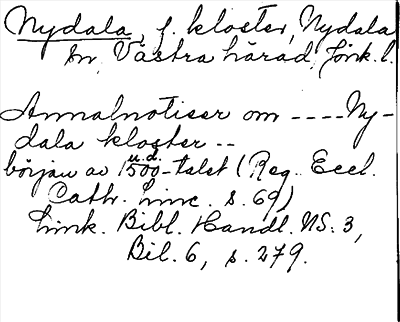 Nydala, f. kloster, Nydala
sn, Västra härad, Jönk. l.
Annalnotiser om ---- Ny-
dala kloster --
u. d.
början av 1500-talet (Reg. Eccl.
Cath. Linc. s. 69)
Link. Bibl. Handl. NS. 3,
Bil. 6, s. 279.